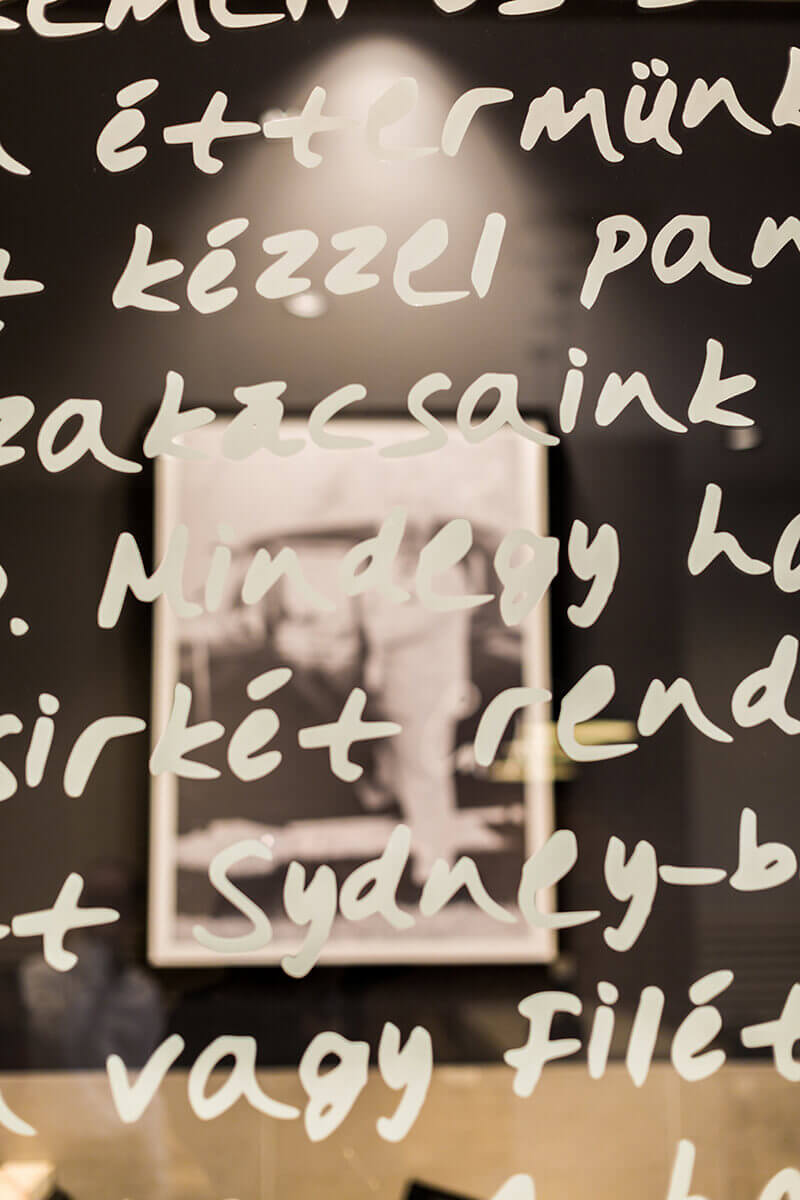 éttermünk
kézzel
zakácsaink
Mindegy
sirkét rend
t Sydney-b
vagy Filét